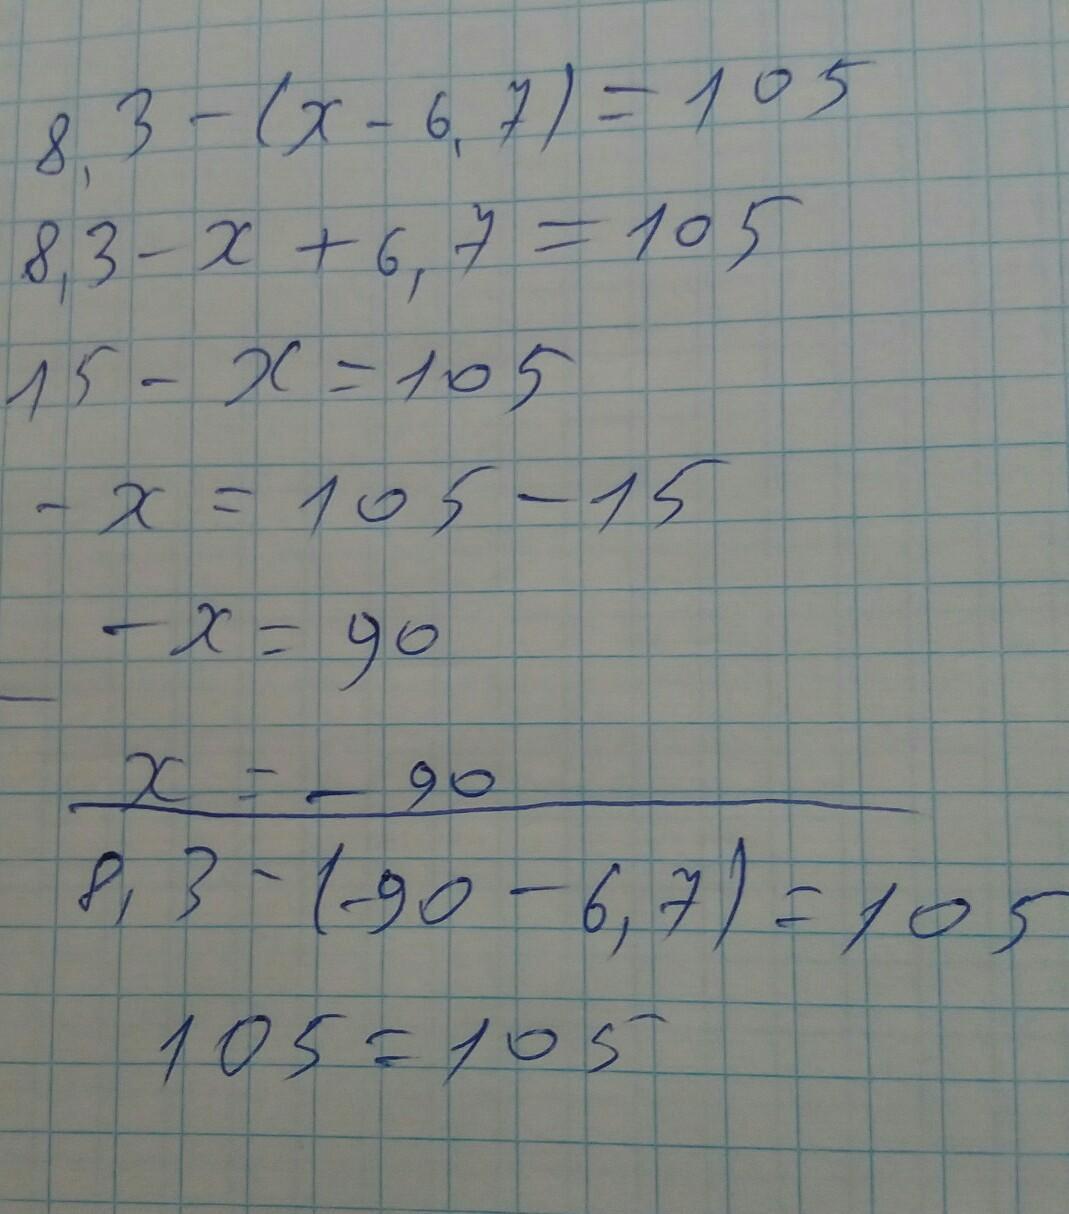 8,3 - (x - 6,7) = 105
8,3 - x + 6,7 = 105
15 - x = 105
- x = 105 - 15
- x = 90
x = - 90
8,3 - (-90 - 6,7) = 105
105 = 105